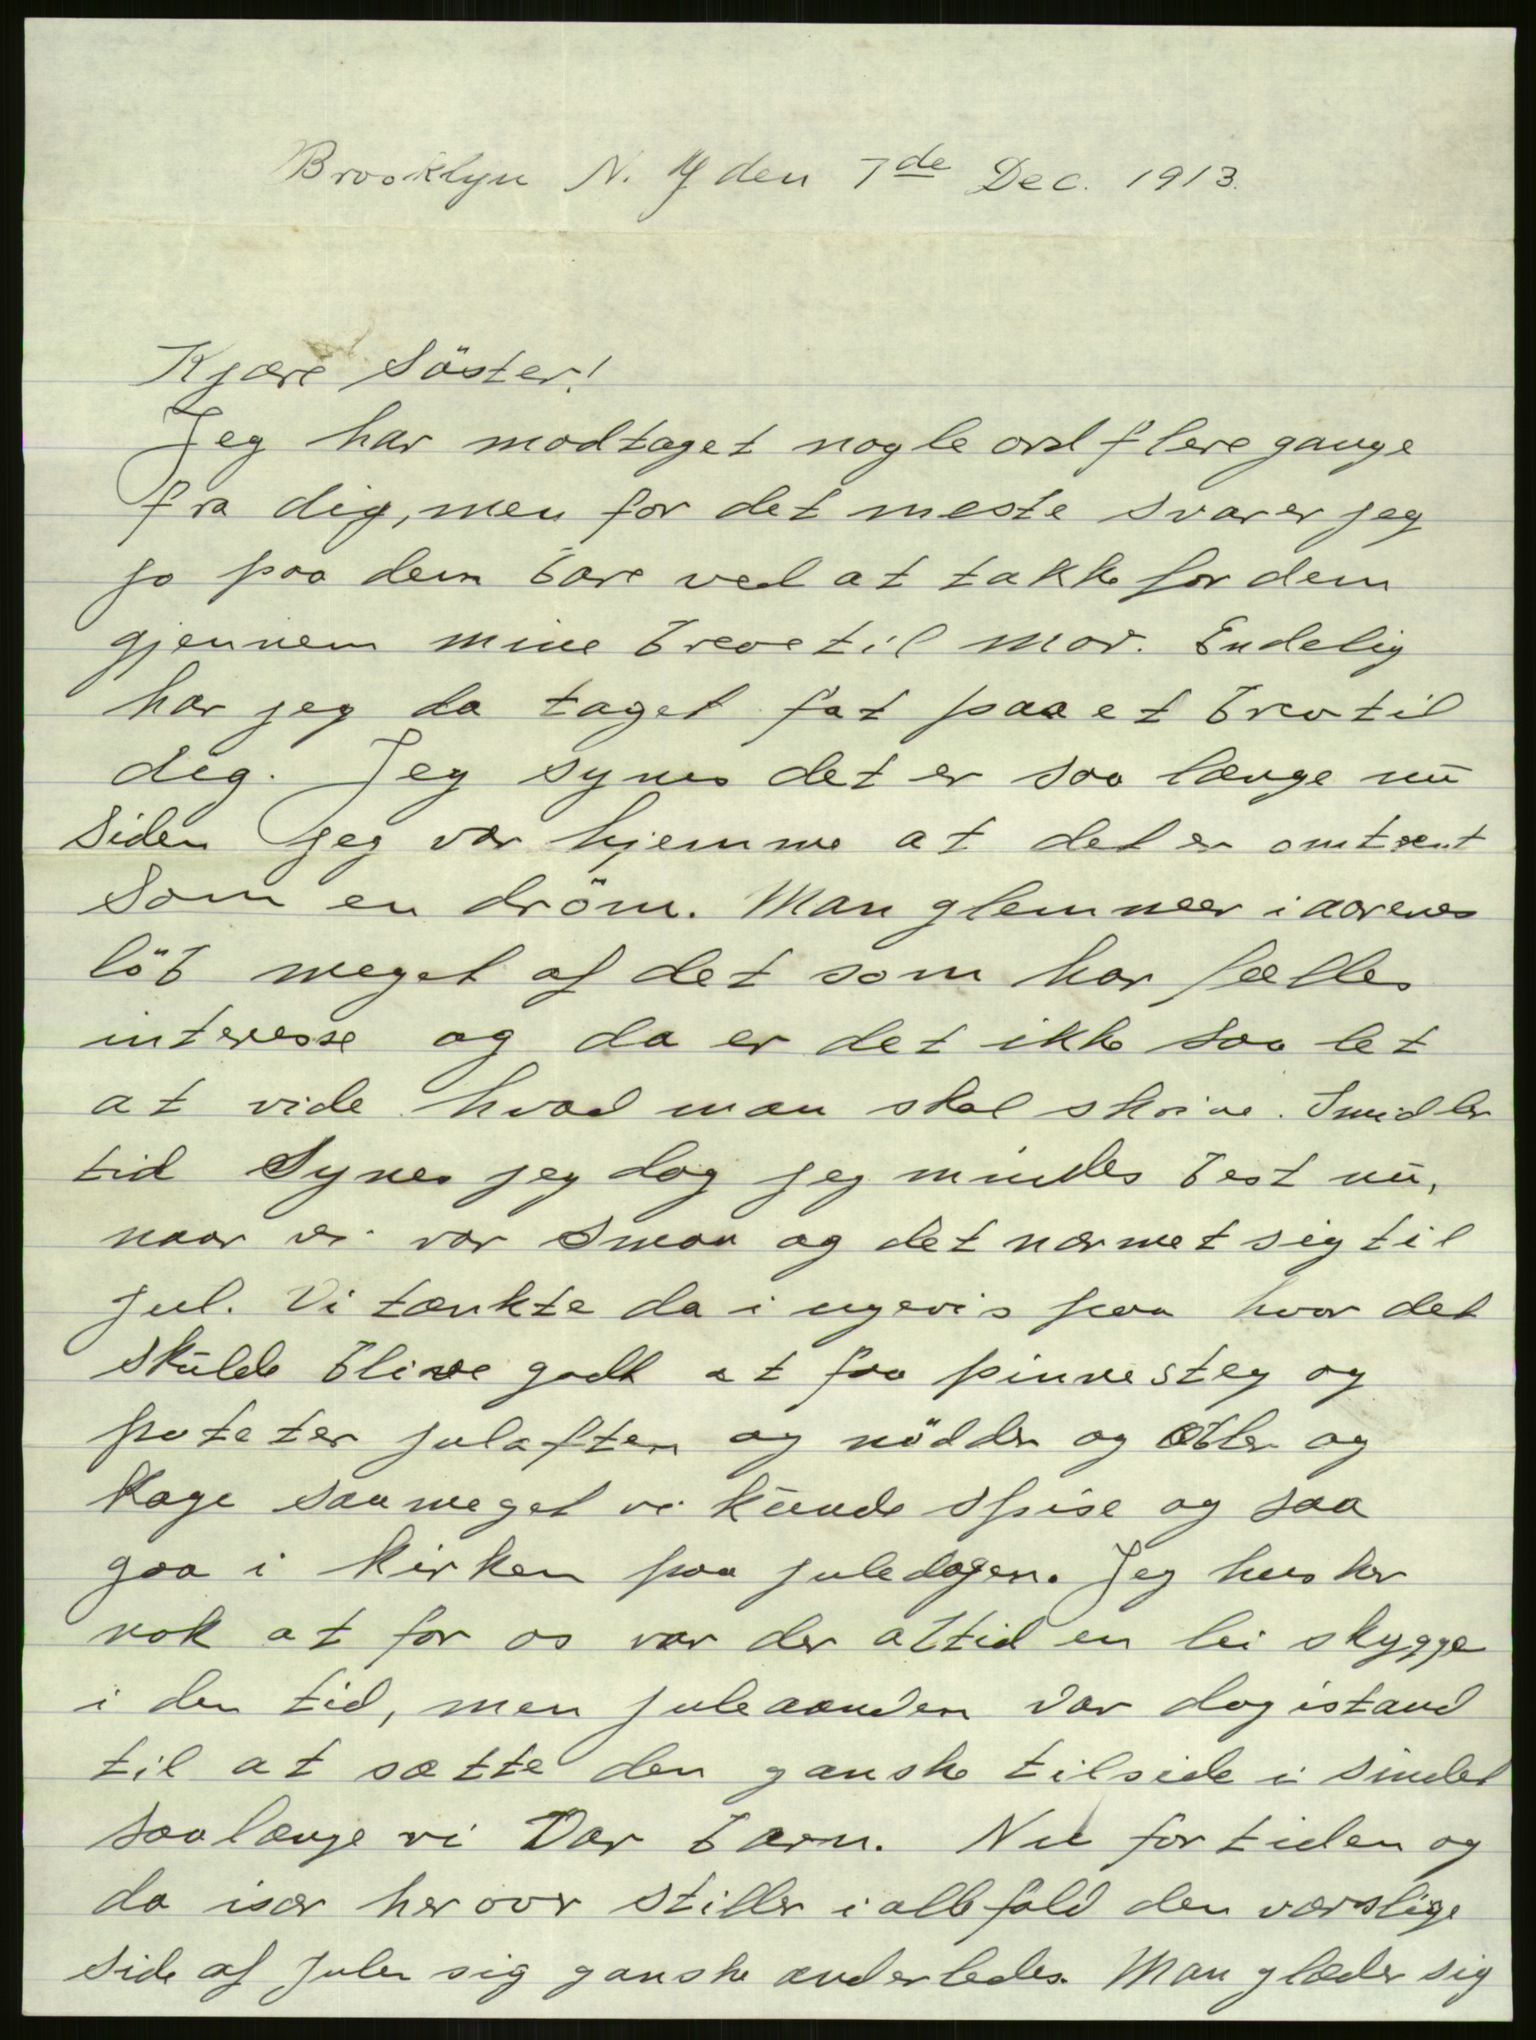 Brooklyn N. Y den 7de Dec. 1913.
Kjære Söster!
Jeg har modtaget nogle ord flere gange
fra dig, men for det meste svarer jeg
jo paa dem bare ved at takke for dem
gjennem mine breve til mor. Endelig
har jeg da taget fat paa et brev til
dig. Jeg synes det er saa længe nu
siden jeg var hjemme at det er omtrent
som en dröm. Man glemmer i aarenes
löb meget af det som har fælles
interesse og da er det ikke saa let
at vide hvad man skal skrive. Imidler
tid synes jeg dog jeg mindes best nu,
naar vi var smaa og det nærmet sig til
jul. Vi tænkte da i ugevis paa hvor det
skulde blive godt at faa pinnesteg og
poteter julaften og nödder og æbler og
kage saa meget vi kunde spise og saa
gaa i kirken paa juledagen. Jeg husker
nok at for os var der altid en lei skygge
i den tid, men juleaanden var dog istand
til at sætte den ganske tilside i sindet
saalænge vi var barn. Nu for tiden og
da især her over stiller i alle fald den verslige
side af julen sig ganske anderledes. Man glæder sig